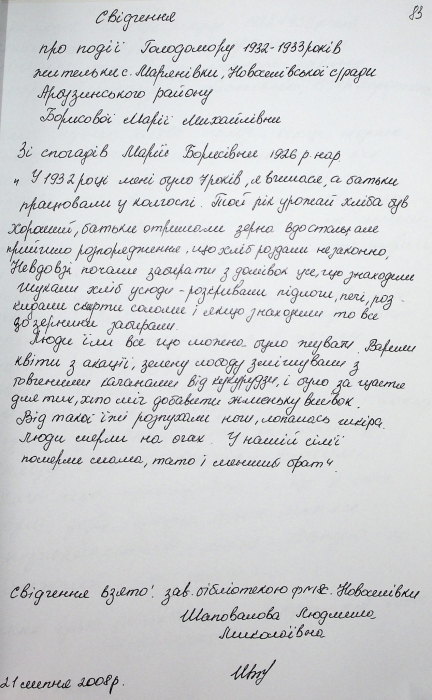 83
Свідчення
про події Голодомору 1932-1933 років
жительки с. Мар'янівки, Новоселівської с/ради
Арбузинського району
Борисової Марії Михайлівни
Зі спогадів Марії Борисівни 1926 р. нар.
„ У 1932 році мені було 7 років, я вчилася, а батьки
працювали у колгоспі. Той рік урожай хліба був
хороший, батьки отримали зерна вдосталь, але
прийшло розпорядження, що хліб роздали незаконно,
Невдовзі почали забирати з домівок усе, що знаходили
шукали хліб усюди - розкривали підлоги, печі, роз-
кидали скирти соломи і якщо знаходили то все
до зернини забирали.
Люди їли все що можна було жувати. Варили
квіти з акації, зелену лободу змішували з
товченими качанами від кукурудзи, і було за щастя
для тих, хто міг добавити жменьку висівок.
Від такої їжі розпухали ноги, лопалась шкіра.
Люди мерли на очах. У нашій сім'ї
померли мама, тато і менший брат".
Свідчення взято: зав. бібліотекою с. Новоселівки
Шаповалова Людмила
Миколаївна
21 липня 2008 р.